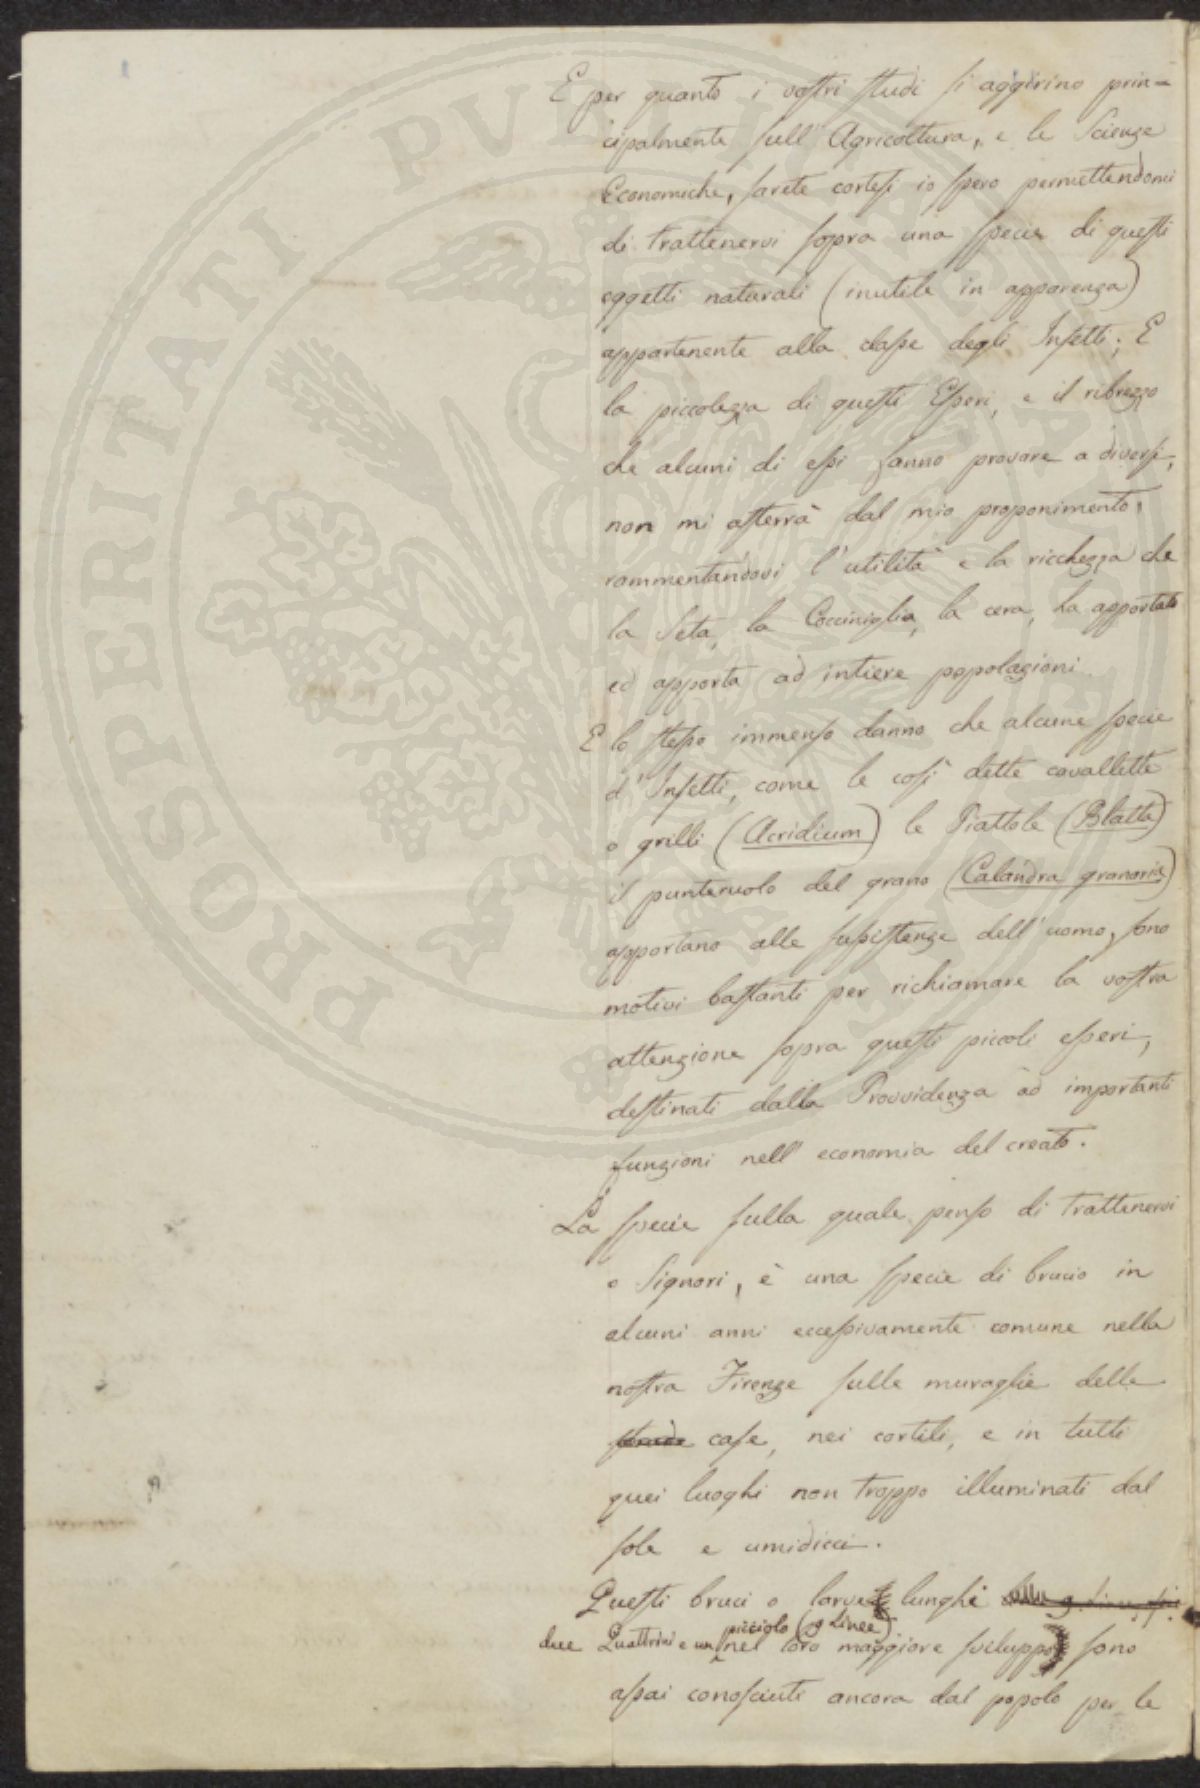 E per quanto i vostri studi si aggirino prin=
cipalmente sull' Agricoltura, e le Scienze
Economiche, sarete cortesi io spero permettendomi
di trattenervi sopra una specie di questi
oggetti naturali (inutile in apparenza)
appartenente alla classe degli Insetti; E
la piccolezza di questi Esseri, e il ribrezzo
che alcuni di essi fanno provare a diversi,
non mi asterrà dal mio proponimento,
rammentandovi l'utilità e la ricchezza che
la Seta, la Cocciniglia, la cera, ha apportato
ed apporta ad intiere popolazioni.
E lo stesso immenso danno che alcune specie
d'Insetti, come le così dette cavallette
o grilli (Acridium) le Piattole (Blatta)
il punteruolo del grano (Calandra granaria)
apportano alle sussistenze dell'uomo, sono
motivi bastanti per richiamare la vostra
attenzione sopra questi piccoli esseri,
destinati dalla Provvidenza ad importanti
funzioni nell'economia del creato.
La specie sulla quale penso di trattenervi
o Signori, è una specie di brucio in
alcuni anni eccessivamente comune nella
nostra Firenze sulle muraglie delle
case, nei cortili, e in tutti
quei luoghi non troppo illuminati dal
sole e umidicci.
Questi bruci o larve lunghi
due Quattrini e un picciolo (9 Linee)
nel loro maggiore sviluppo sono
assai conosciuti ancora dal popolo per le
PROSPERITATI PUBLICAE AUGENDAE